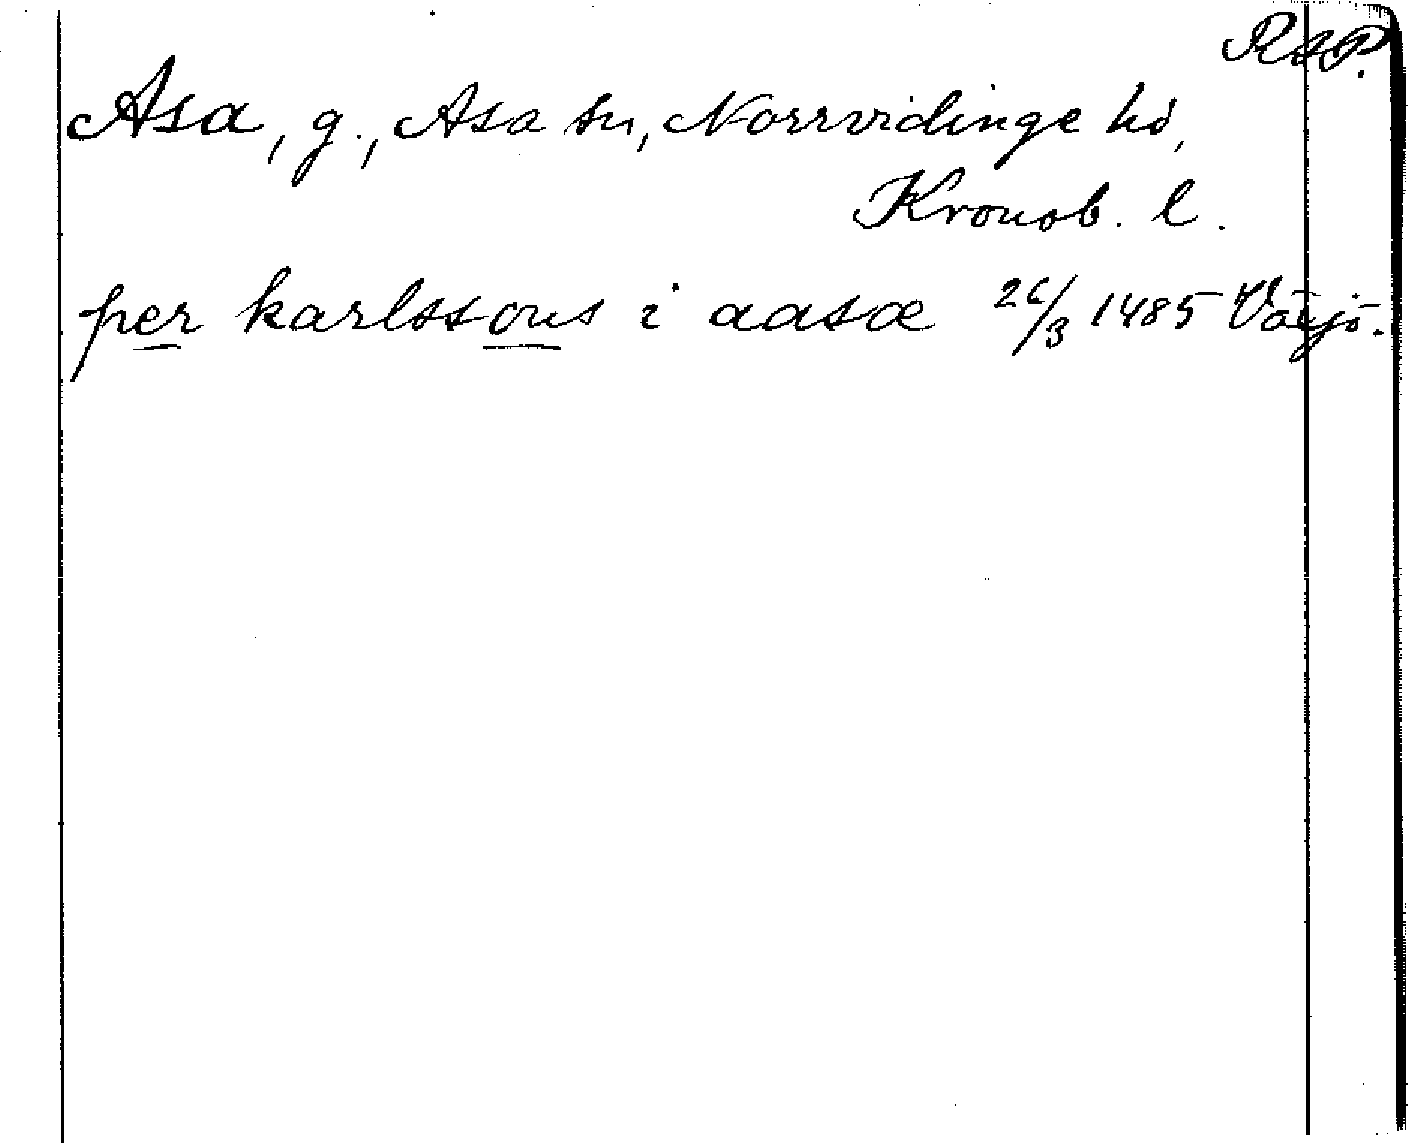 RAP.
Asa, g., Asa sn, Norrvidinge hd,
Kronob. l.
per karlssons i aasæ 26/3 1485 Växjö.